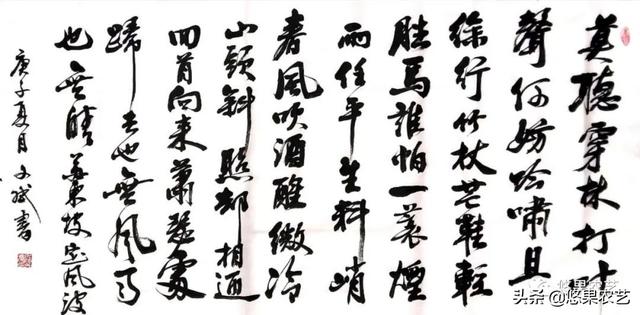 莫聽穿林打叶
聲何妨吟嘯且
徐行竹杖芒鞋輕
胜馬誰怕一蓑煙
雨任平生料峭
春風吹酒醒微冷
山頭斜照却相迎
回首向来蕭瑟處
歸去也無風雨
也無晴 蘇東坡定風波
庚子夏月 文斌書
悠果农艺
头条 @悠果农艺